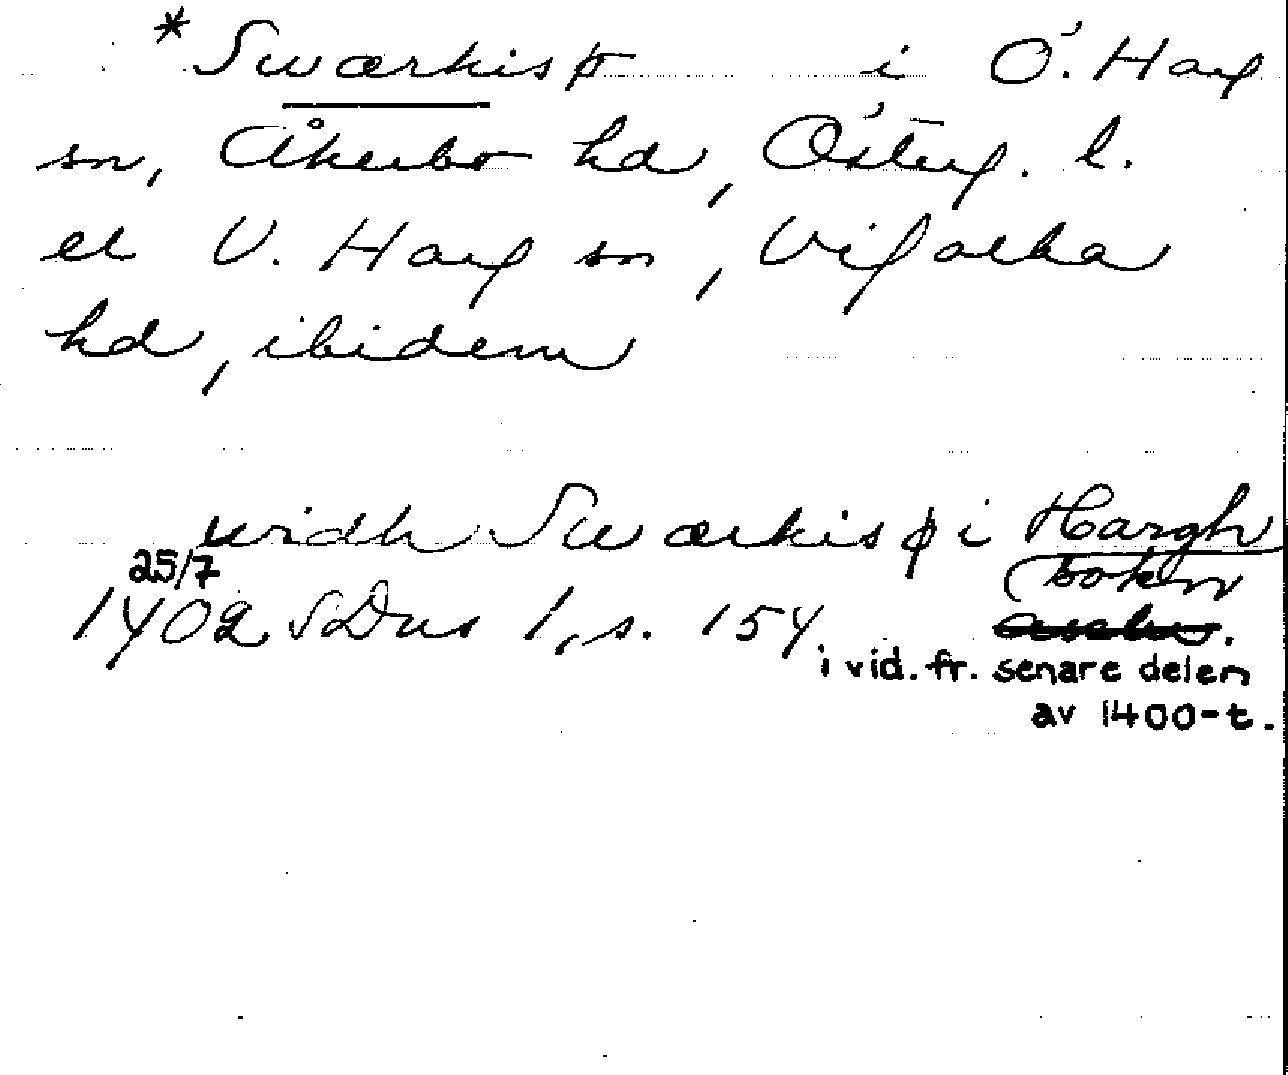 *Swærkisþ i Ö. Harg
sn, Åkerbo hd, Österg. l.
el V. Harg sn, Vifolka
hd, ibidem
widh Swærkisþ i Hargh
(sokn
25/7
1402 SDns 1, s. 154
i vid. fr. senare delen
av 1400-t.